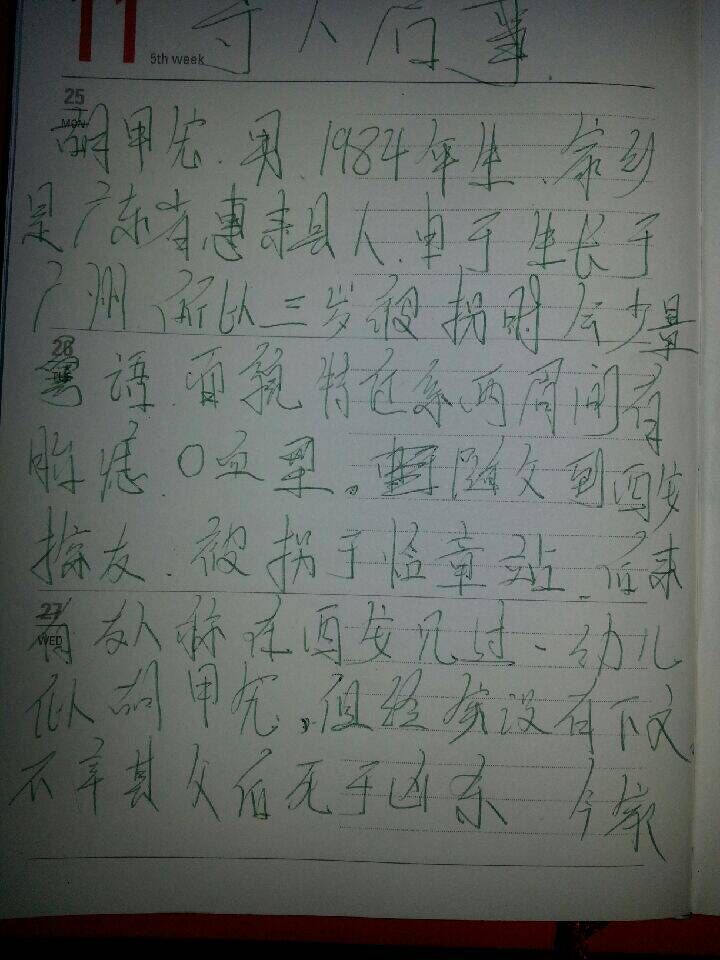 11
5th week
寻人启事
25
MON
胡甲宏.男.1984年生.家乡
是广东省惠来县人.由于生长于
广州.所以三岁被拐时会少量
26
粤语.面貌特征系两眉间有
胎痣.O血型。随父到西安
探友.被拐于临章站.后来
27
WED
有友人称在西安见过一幼儿
似胡甲宏.但终究没有下文.
不幸其父后死于凶杀 今家